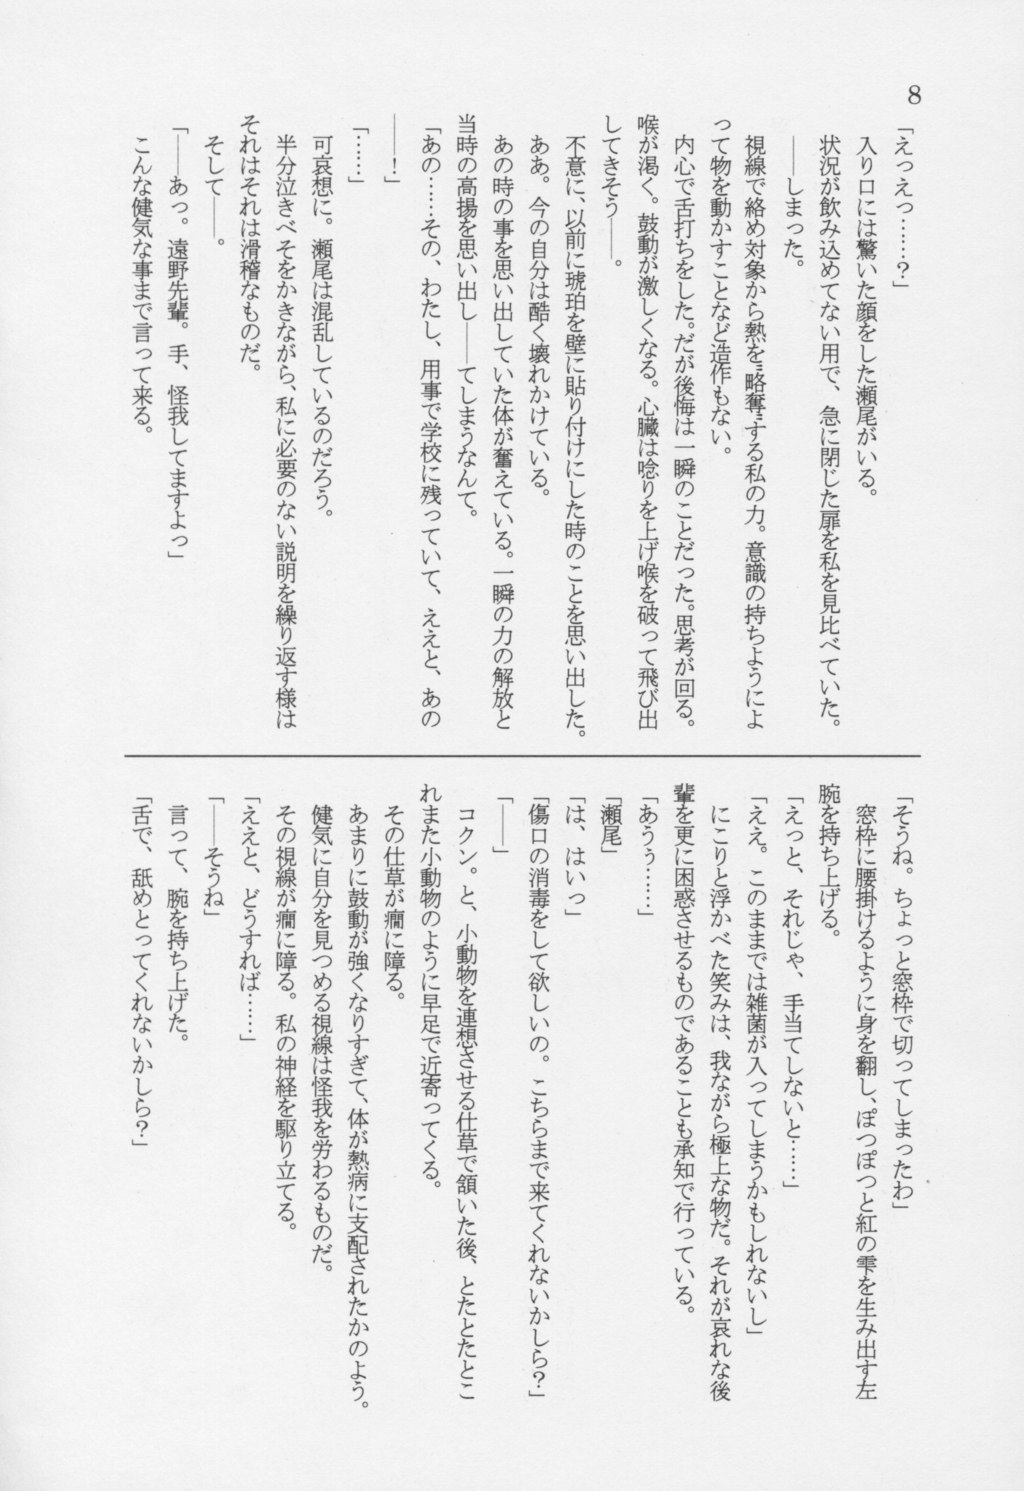 8
「えっえっ……？」
入り口には驚いた顔をした瀬尾がいる。
状況が飲み込めてない用で、急に閉じた扉を私を見比べていた。
――しまった。
視線で絡め対象から熱を"略奪"する私の力。意識の持ちようによ
って物を動かすことなど造作もない。
内心で舌打ちをした。だが後悔は一瞬のことだった。思考が回る。
喉が渇く。鼓動が激しくなる。心臓は唸りを上げ喉を破って飛び出
してきそう――。
不意に、以前に琥珀を壁に貼り付けにした時のことを思い出した。
ああ。今の自分は酷く壊れかけている。
あの時の事を思い出していた体が奮えている。一瞬の力の解放と
当時の高揚を思い出し――てしまうなんて。
「あの……その、わたし、用事で学校に残っていて、ええと、あの
――！」
「……」
可哀想に。瀬尾は混乱しているのだろう。
半分泣きべそをかきながら、私に必要のない説明を繰り返す様は
それはそれは滑稽なものだ。
そして――。
「――あっ。遠野先輩。手、怪我してますよっ」
こんな健気な事まで言って来る。
「そうね。ちょっと窓枠で切ってしまったわ」
窓枠に腰掛けるように身を翻し、ぽっぽっと紅の雫を生み出す左
腕を持ち上げる。
「えっと、それじゃ、手当てしないと……」
「ええ。このままでは雑菌が入ってしまうかもしれないし」
にこりと浮かべた笑みは、我ながら極上な物だ。それが哀れな後
輩を更に困惑させるものであることも承知で行っている。
「あうぅ……」
「瀬尾」
「は、はいっ」
「傷口の消毒をして欲しいの。こちらまで来てくれないかしら？」
「――」
コクン。と、小動物を連想させる仕草で頷いた後、とたとたとこ
れまた小動物のように早足で近寄ってくる。
その仕草が癇に障る。
あまりに鼓動が強くなりすぎて、体が熱病に支配されたかのよう。
健気に自分を見つめる視線は怪我を労わるものだ。
その視線が癇に障る。私の神経を駆り立てる。
「ええと、どうすれば……」
「――そうね」
言って、腕を持ち上げた。
「舌で、舐めとってくれないかしら？」